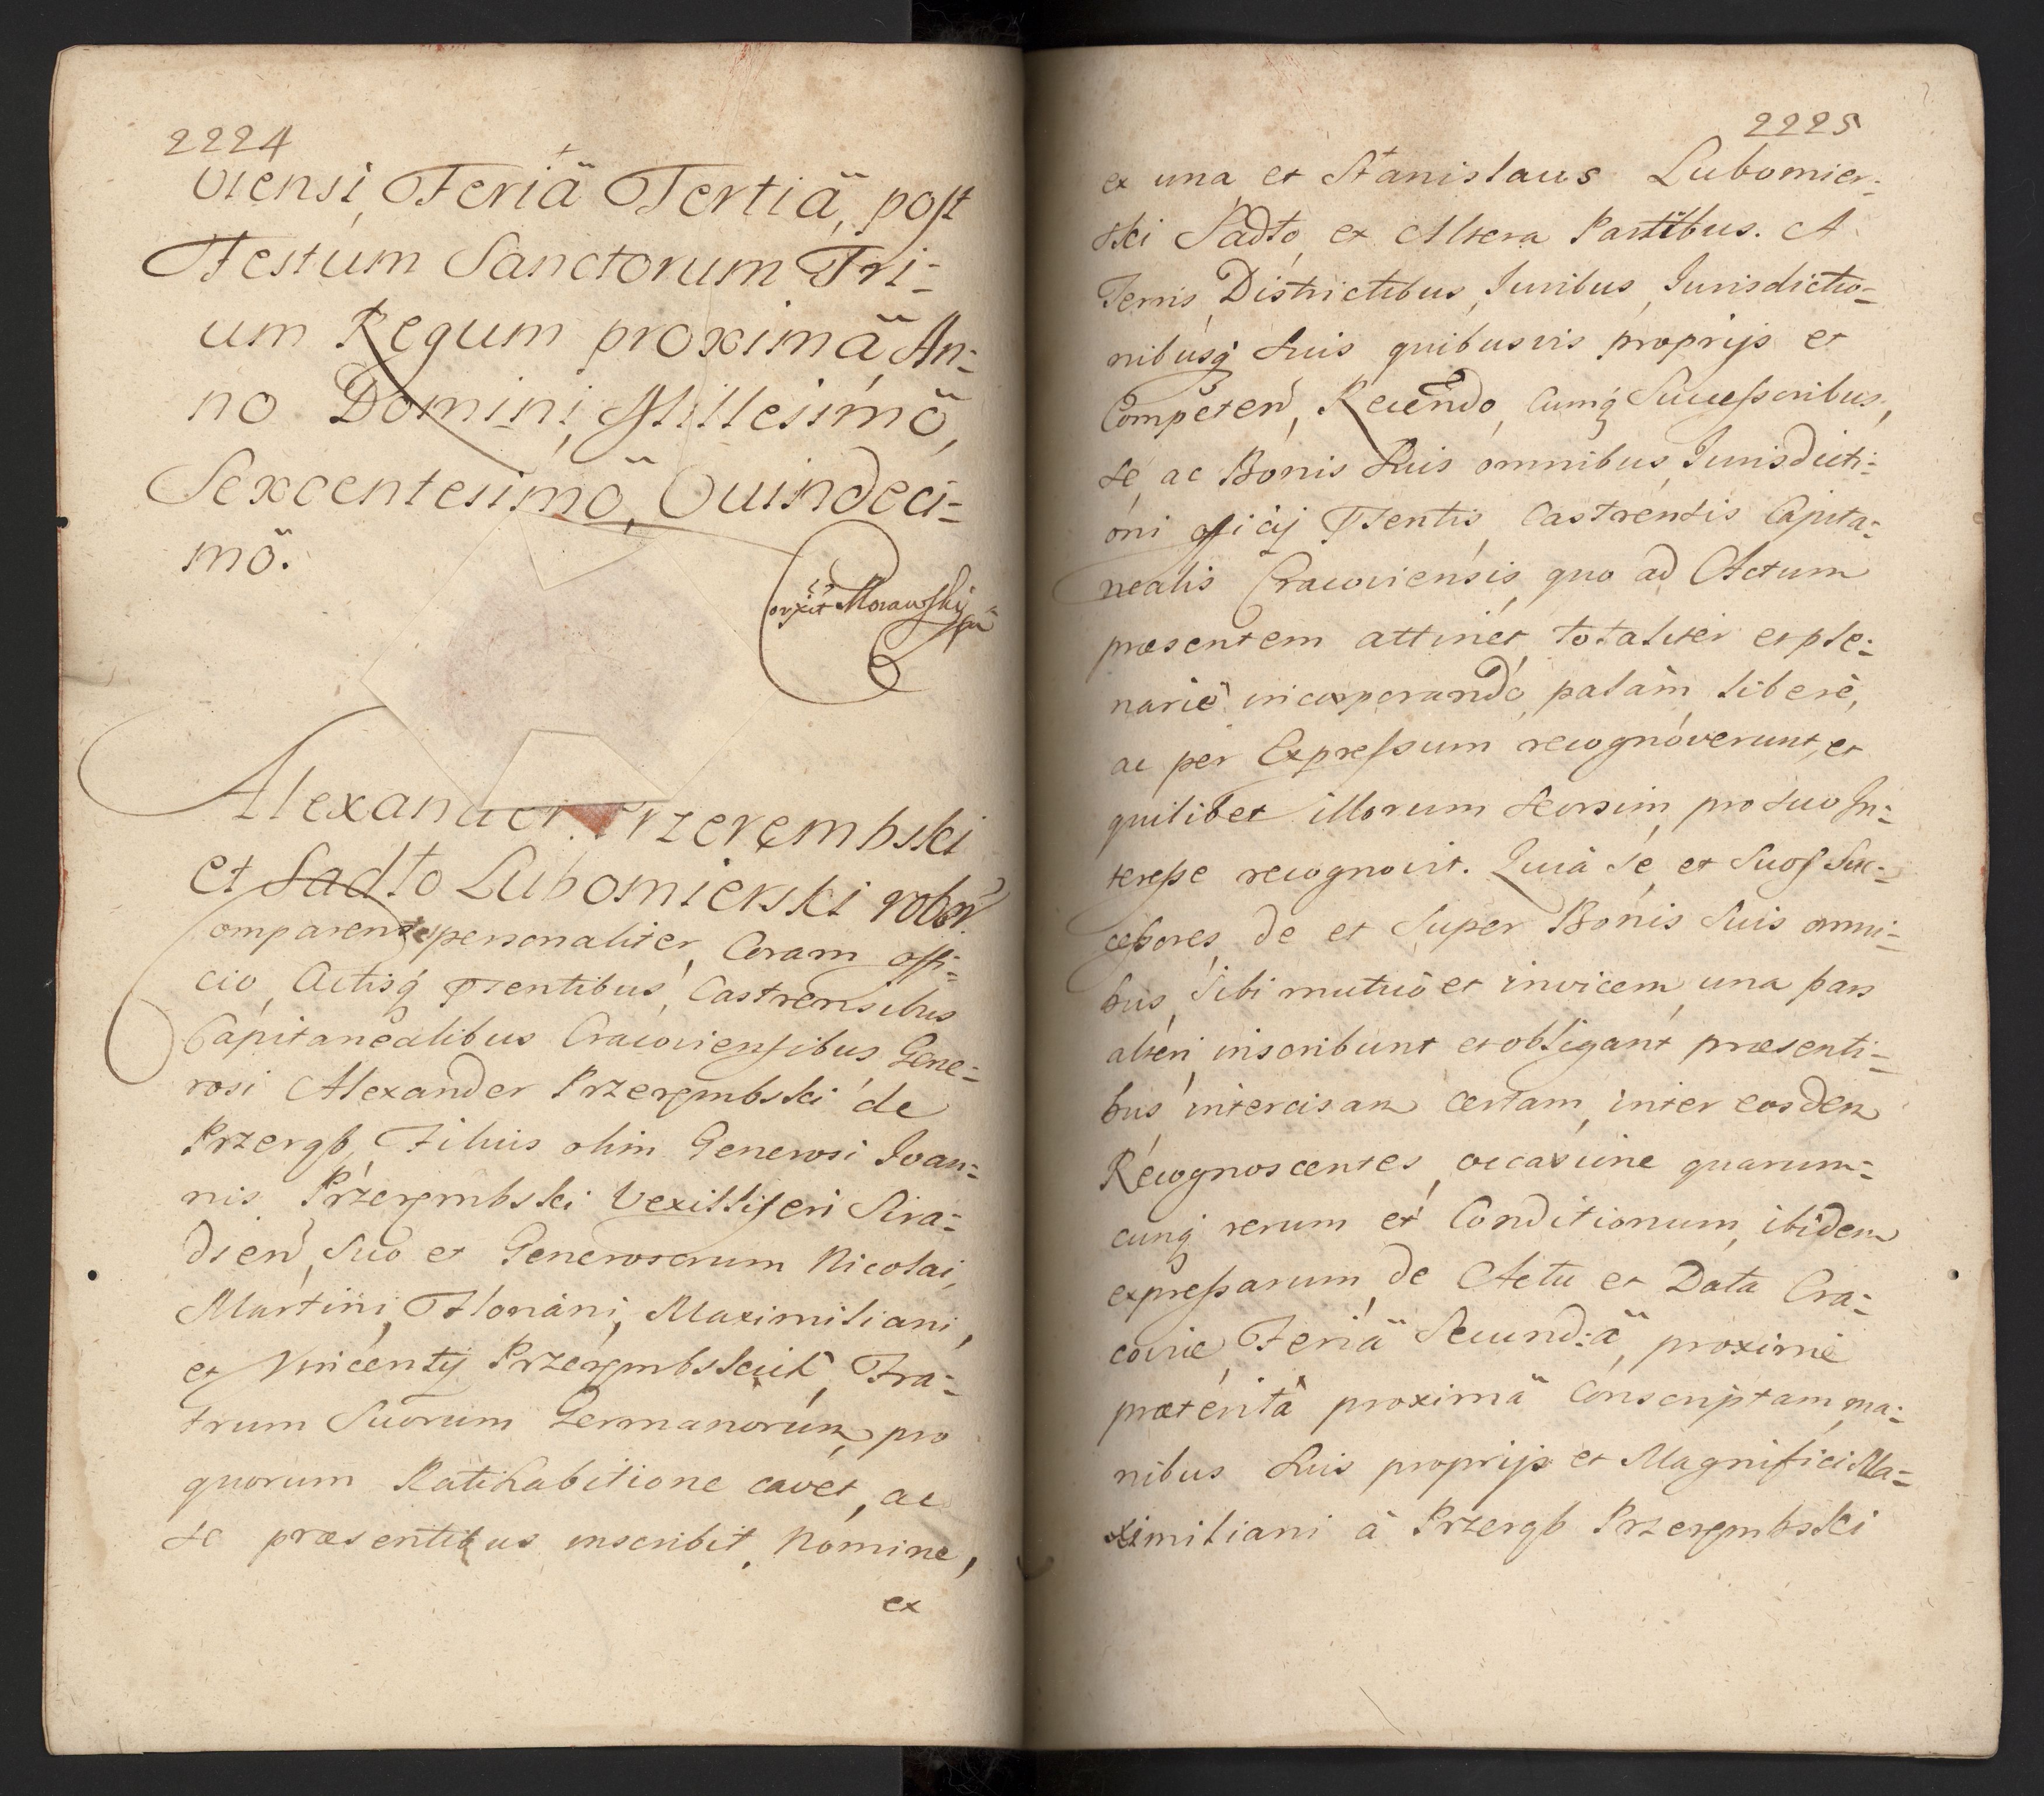 2224
viensi, Feriâ Tertiâ, post
Festum Sanctorum Tri=
um Regum proximâ, An=
no Domini, Millesimô,
Sexcentesimô, Quindeci=
mô.
Morawskÿ
Alexander Przerembski
et Sadło Lubomierski robor.
Comparentes personaliter, Coram Offi=
cio, Actisq́ Pntibus, Castrensibus
Capitanealibus Cracoviensibus, Gene=
rosi Alexander Przerembski de
Przeręb, Filius olim Generosi Joan=
nis Przerembski Vexilliferi Sira=
dien̄, Suo et Generosorum Nicolai,
Martini, Floriani, Maximiliani,
et Vincentÿ Przerembskich, Fra=
trum Suorum Germanorum, pro
quorum Ratihabitione cavet, ac
se præsentibus inscribit, Nomine,
ex
2225
ex una, et Stanislaus Lubomier=
ski Sadło, ex Altera Partibus. A
Terris, Districtibus, Juribus, Jurisdictio=
nibusq́ Suis quibusvis proprijs et
Competen̄, Recēndo, Cumq́ Successoribus,
Se, ac Bonis Suis omnibus, Jurisdicti=
oni officij Pntis, Castrensis Capita=
nealis Cracoviensis, quo ad Actum
præsentem attinet, totaliter et ple=
nariè incorporando, palàm, liberè,
ac per Expressum recognoverunt, et
quilibet illorum seorsim, pro suo In=
teresse recognovit. Quià Se, et Suos Suc=
cessores, de et Super Bonis Suis omni=
bus, Sibi mutuò et invicem, una pars
alteri, inscribunt et obligant præsenti=
bus intercisam certam, inter eosdem
Recognoscentes, occasione quarum=
cunq́ rerum et Conditionum, ibidem
expressarum, de Actu et Data Cra=
coviæ, Feriâ Secundâ, proximè
præteritâ proximâ Conscriptam, ma=
nibus Suis proprijs et Magnifici Ma=
ximiliani à Przeręb Przerembski